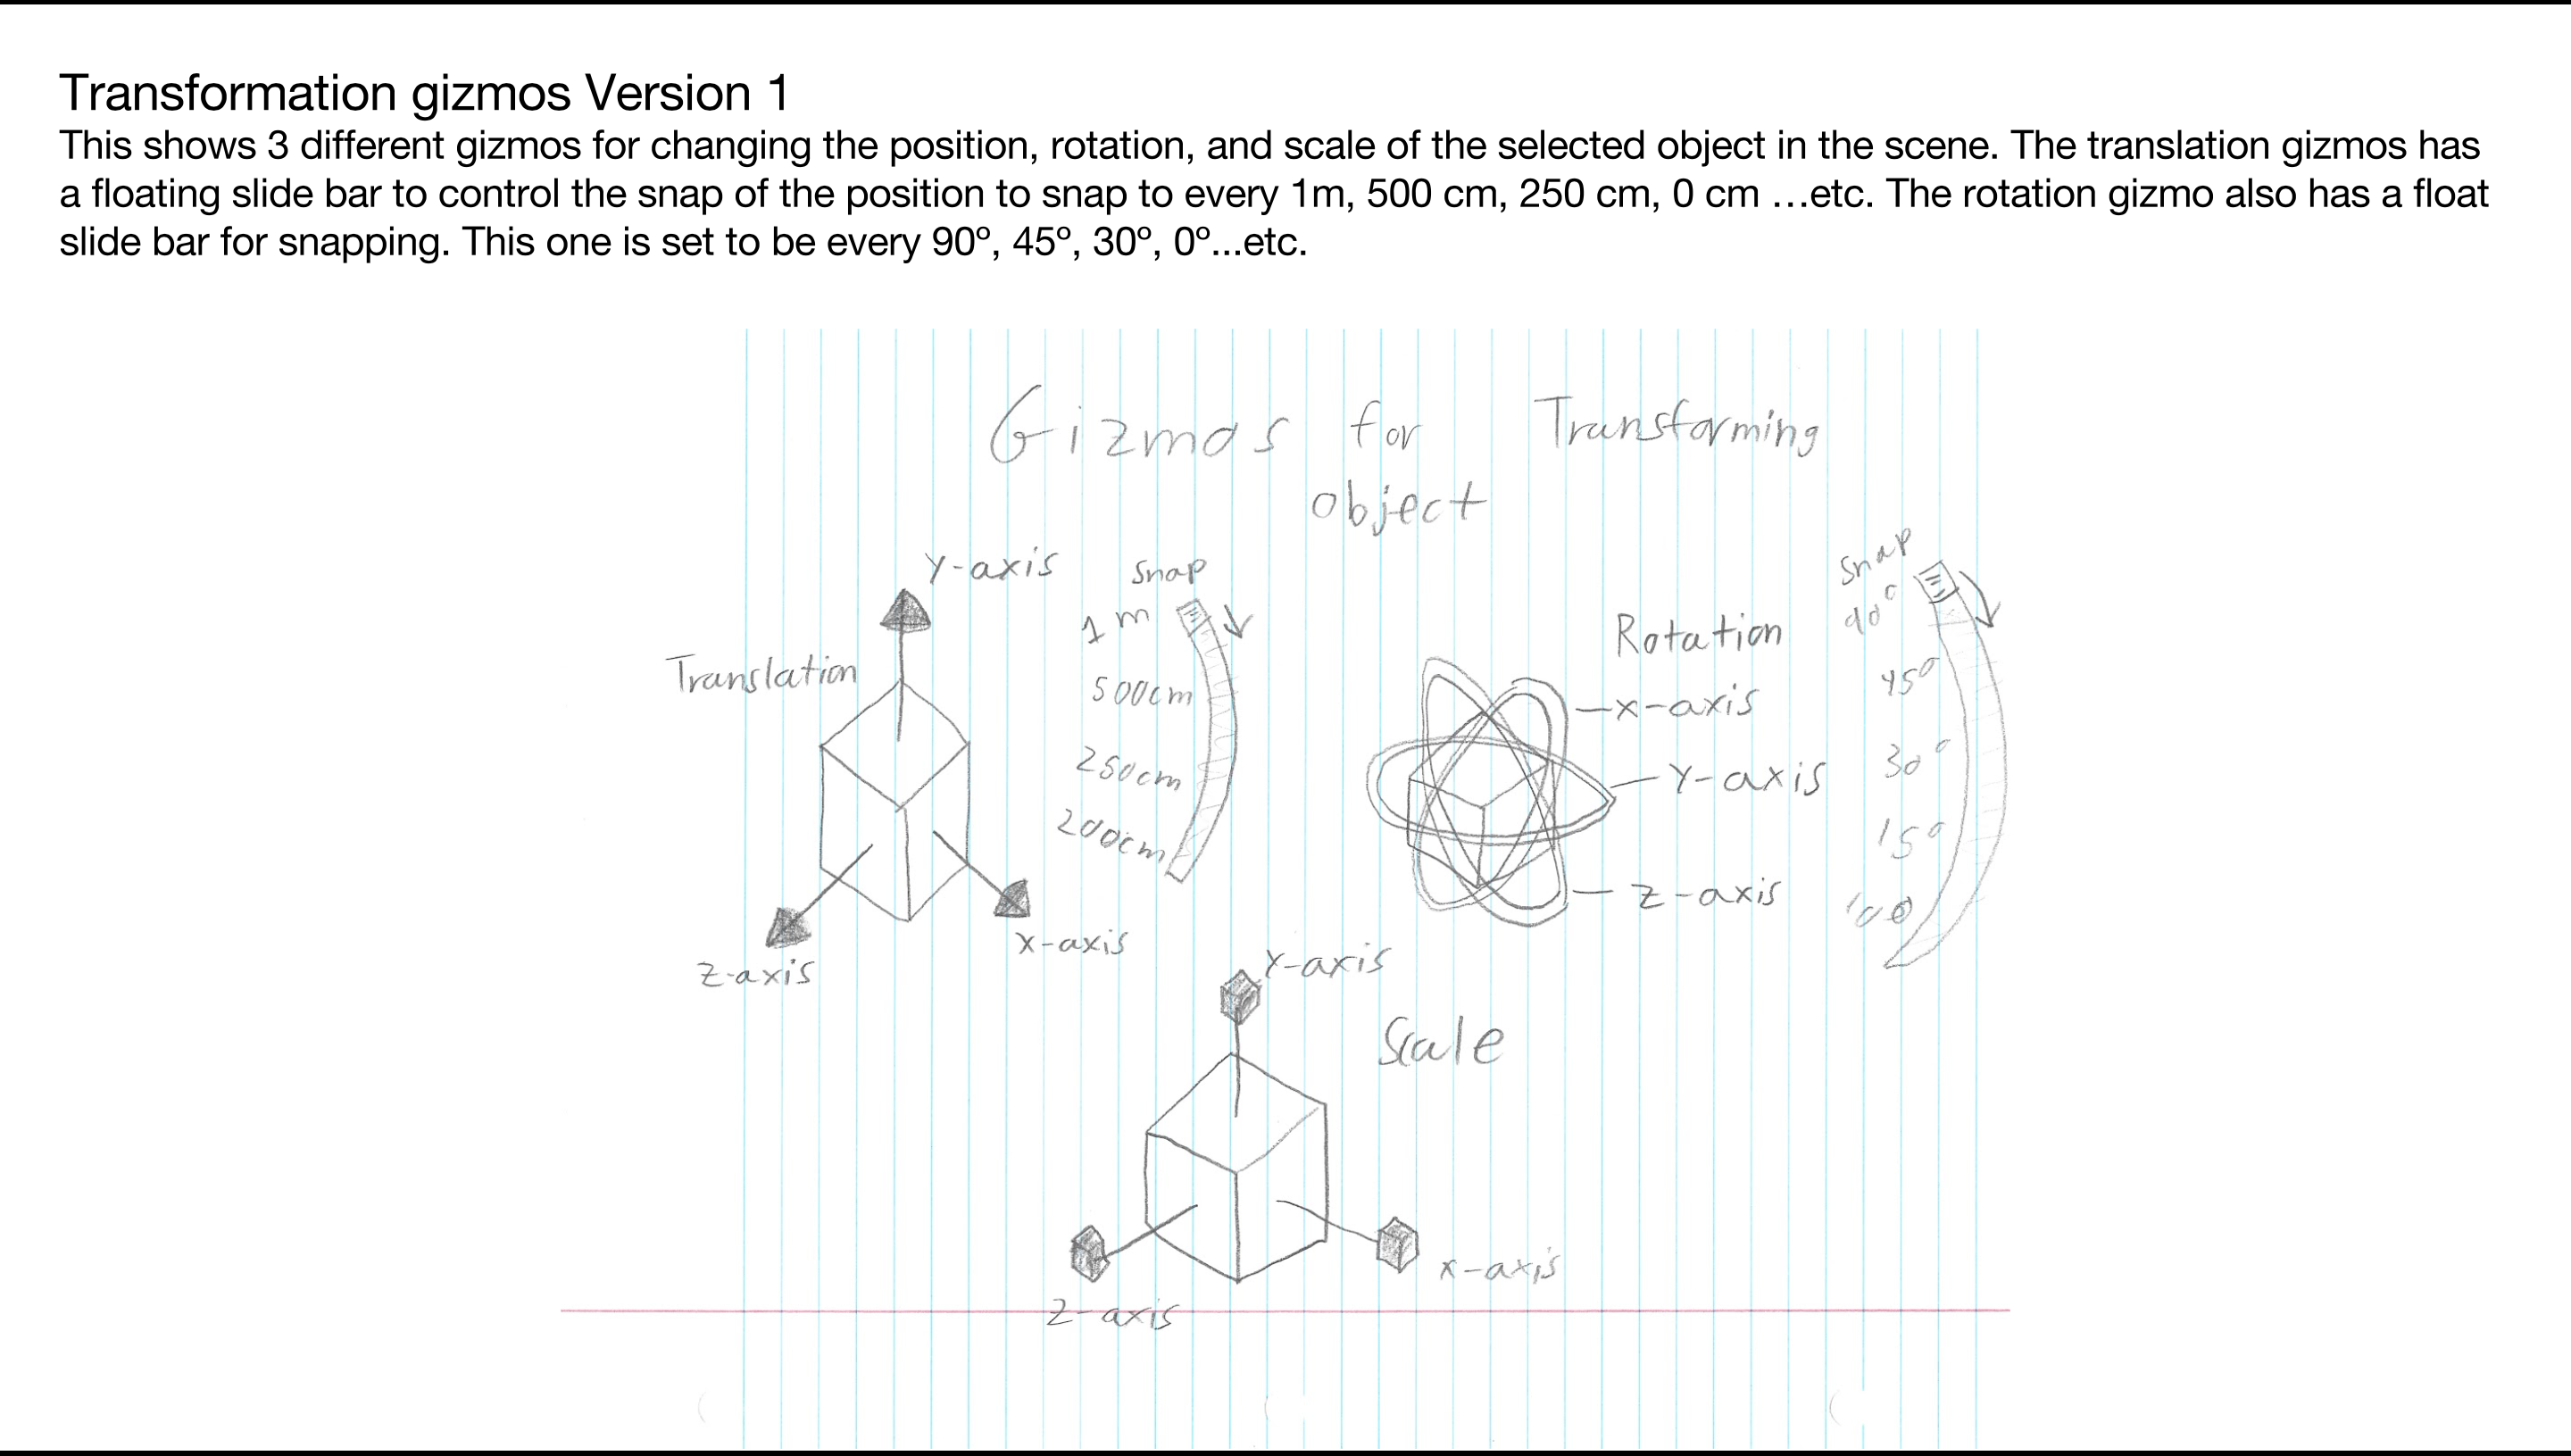 Transformation gizmos Version 1
This shows 3 different gizmos for changing the position, rotation, and scale of the selected object in the scene. The translation gizmos has
a floating slide bar to control the snap of the position to snap to every 1m, 500 cm, 250 cm, 0 cm …etc. The rotation gizmo also has a float
slide bar for snapping. This one is set to be every 90º, 45º, 30º, 0º...etc.
Gizmos for Transforming
object
Y-axis
Translation
z-axis
x-axis
Snap
1 m
500cm
250cm
200cm
Rotation
x-axis
Y-axis
z-axis
Snap
90°
45°
30°
15°
Scale
Y-axis
x-axis
z-axis